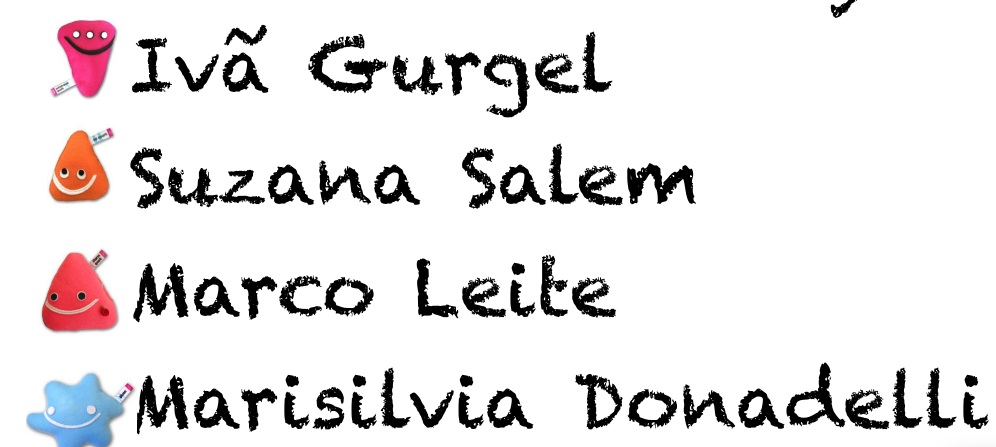 Ivã Gurgel
Suzana Salem
Marco Leite
Marisilvia Donadelli